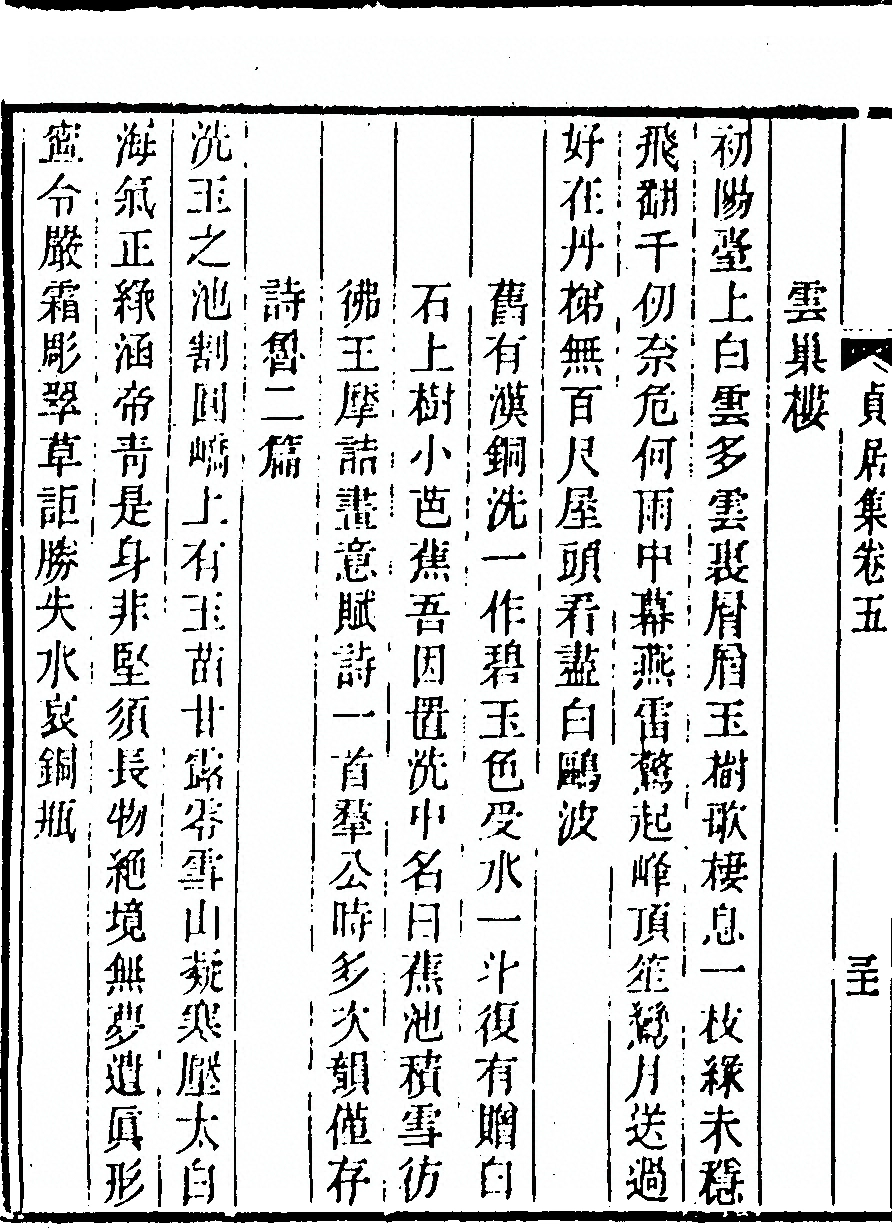 貞居集卷五
雲巢樓
初陽臺上白雲多雲裏層層玉樹歌棲息一枝綠未穩
飛翻千仞奈危何雨中幕燕雷驚起峰頂笙鸞月送過
好在丹梯無百尺屋頭看盡白鷗波
舊有漢銅洗一作碧玉色受水一斗復有贈白
石上樹小芭蕉吾因置洗中名曰蕉池積雪彷
彿王摩詰畫意賦詩一首羣公時多次韻僅存
詩魯二篇
洗玉之池割圓嶠上有玉苗甘露零雪山疑寒壓太白
海氣正綠涵帝青是身非堅須長物絶境無夢遺眞形
令嚴霜彫翠草詎勝失水哀銅瓶